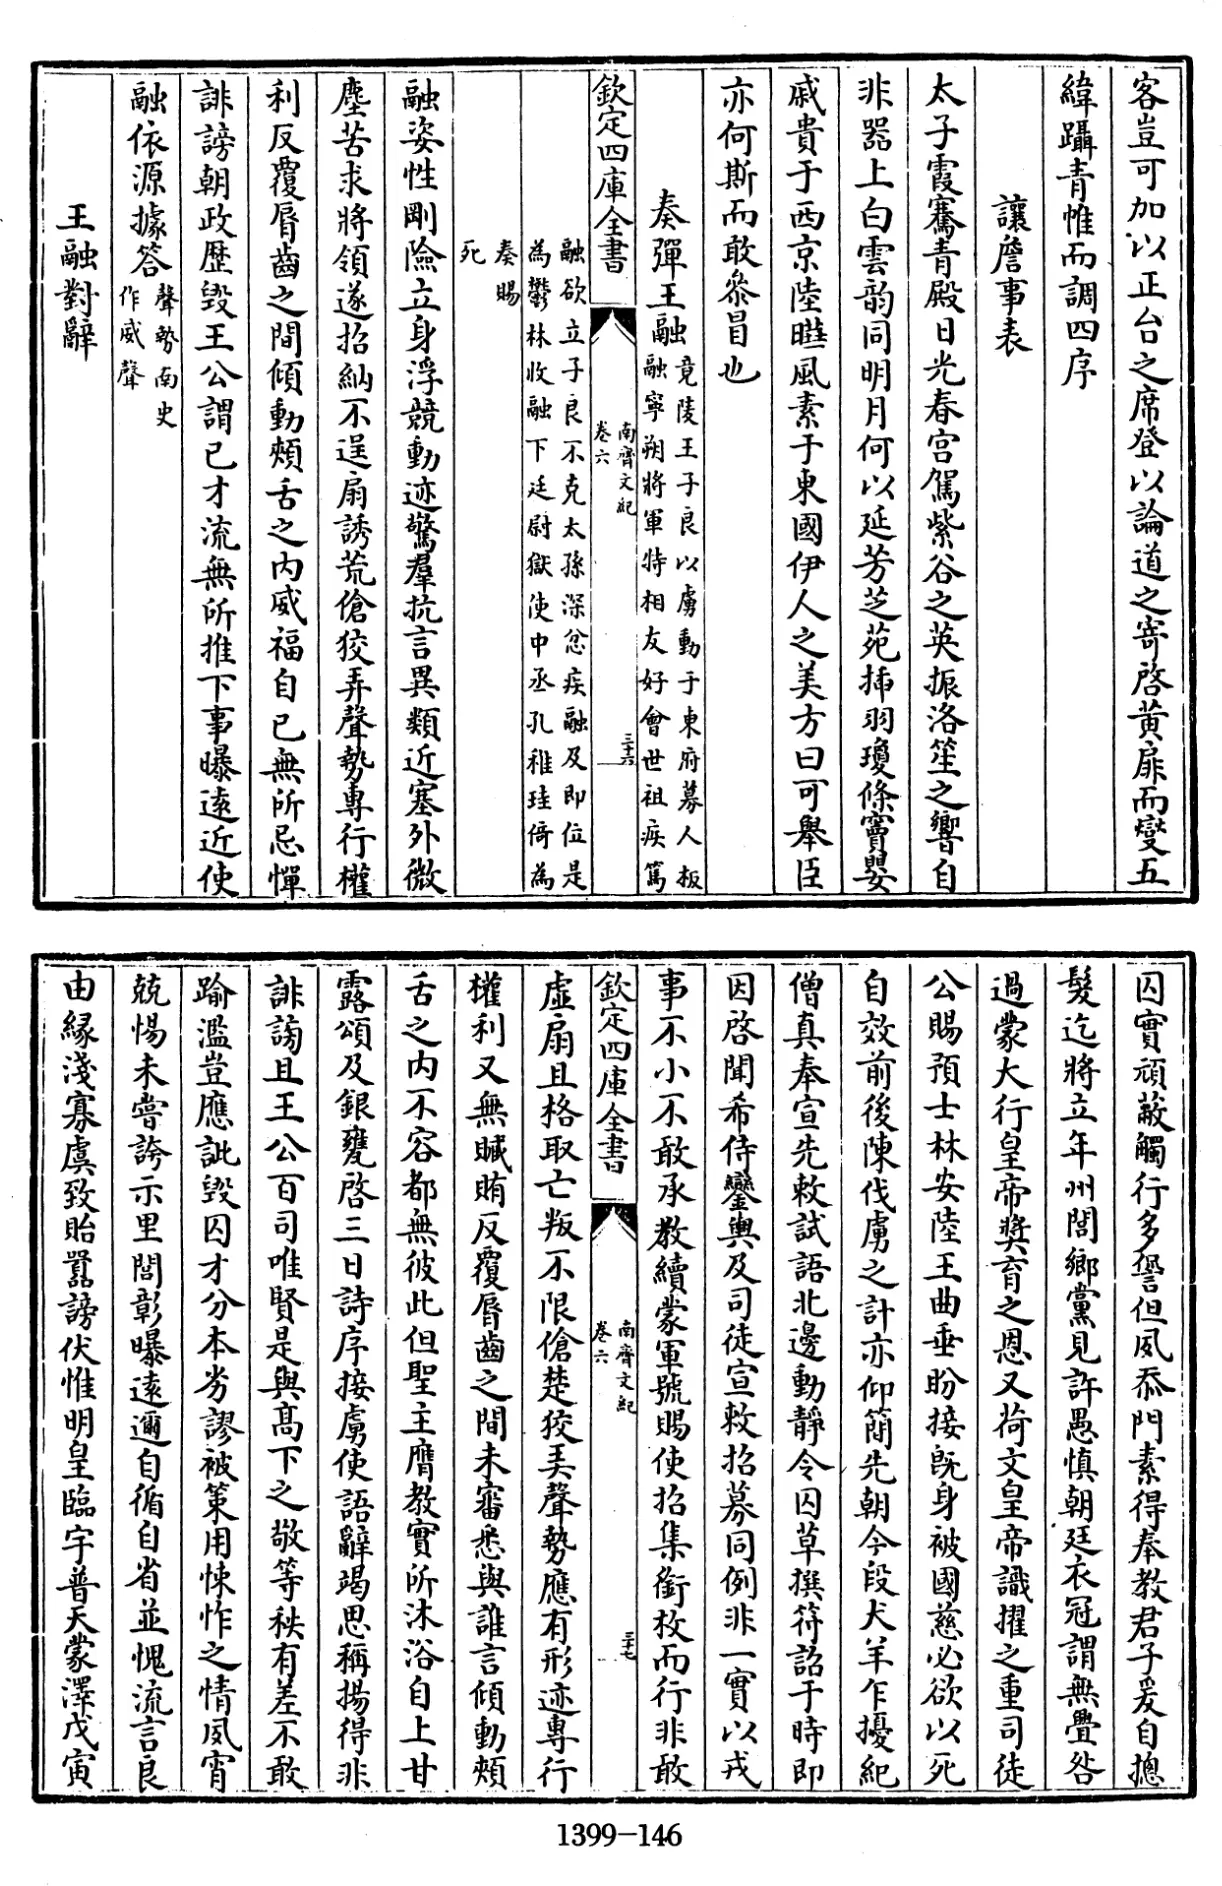 客豈可加以正台之席登以論道之寄啓黄扉而燮五
緯躡青帷而調四序
讓詹事表
太子霞騫青殿日光春宫駕紫谷之英振洛笙之響自
非器上白雲韵同明月何以延芳芝苑揷羽瓊條竇嬰
戚貴于西京陸曄風素于東國伊人之美方曰可舉臣
亦何斯而敢叅冒也
奏彈王融
竟陵王子良以虜動于東府募人板
融寧朔將軍特相友好會世祖疾篤
欽定四庫全書
南齊文紀
卷六
三十六
融欲立子良不克太孫深忿疾融及即位是
為鬱林收融下廷尉獄使中丞孔稚珪倚為
奏賜
死
融姿性剛險立身浮競動迹驚羣抗言異類近塞外微
塵苦求將領遂招納不逞扇誘荒傖狡弄聲勢專行權
利反覆脣齒之間傾動頰舌之内威福自已無所忌憚
誹謗朝政歴毀王公謂已才流無所推下事曝遠近使
融依源據答
聲勢南史
作威聲
王融對辭
囚實頑蔽觸行多諐但夙忝門素得奉教君子爰自摠
髮迄將立年州閭鄉黨見許愚慎朝廷衣冠謂無舋咎
過蒙大行皇帝奬育之恩又荷文皇帝識擢之重司徒
公賜預士林安陸王曲垂盼接既身被國慈必欲以死
自效前後陳伐虜之計亦仰簡先朝今段犬羊乍擾紀
僧真奉宣先敕試語北邊動静令囚草撰符詔于時即
因啓聞希侍鑾輿及司徒宣敕招募同例非一實以戎
事不小不敢承教續蒙軍號賜使招集銜枚而行非敢
欽定四庫全書
南齊文紀
卷六
三十七
虚扇且格取亡叛不限傖楚狡弄聲勢應有形迹專行
權利又無贓賄反覆脣齒之間未審悉與誰言傾動頰
舌之内不容都無彼此但聖主膺教實所沐浴自上甘
露頌及銀甕啓三日詩序接虜使語辭竭思稱揚得非
誹謗且王公百司唯賢是與髙下之敬等秩有差不敢
踰濫豈應訿毀囚才分本劣謬被策用悚怍之情夙宵
兢惕未嘗誇示里閭彰曝遠邇自循自省並愧流言良
由縁淺寡虞致貽嚚謗伏惟明皇臨宇普天蒙澤戊寅
1399-146